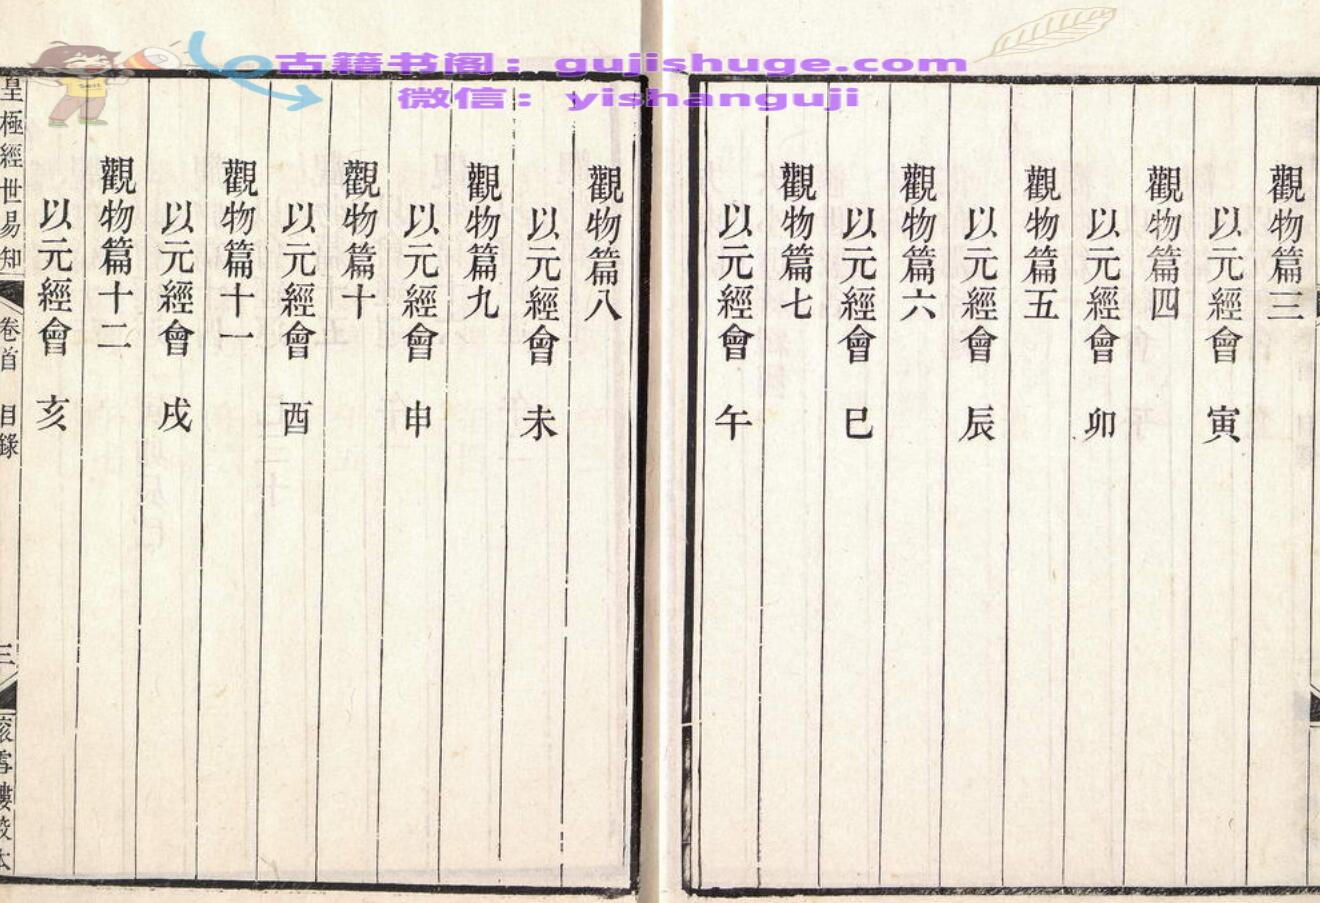 古籍书阁：gujishuge.com
微信：yishanguji
觀物篇三
以元經會　寅
觀物篇四
以元經會　卯
觀物篇五
以元經會　辰
觀物篇六
以元經會　巳
觀物篇七
以元經會　午
觀物篇八
以元經會　未
觀物篇九
以元經會　申
觀物篇十
以元經會　酉
觀物篇十一
以元經會　戌
觀物篇十二
以元經會　亥
皇極經世易知　卷首　目錄　三